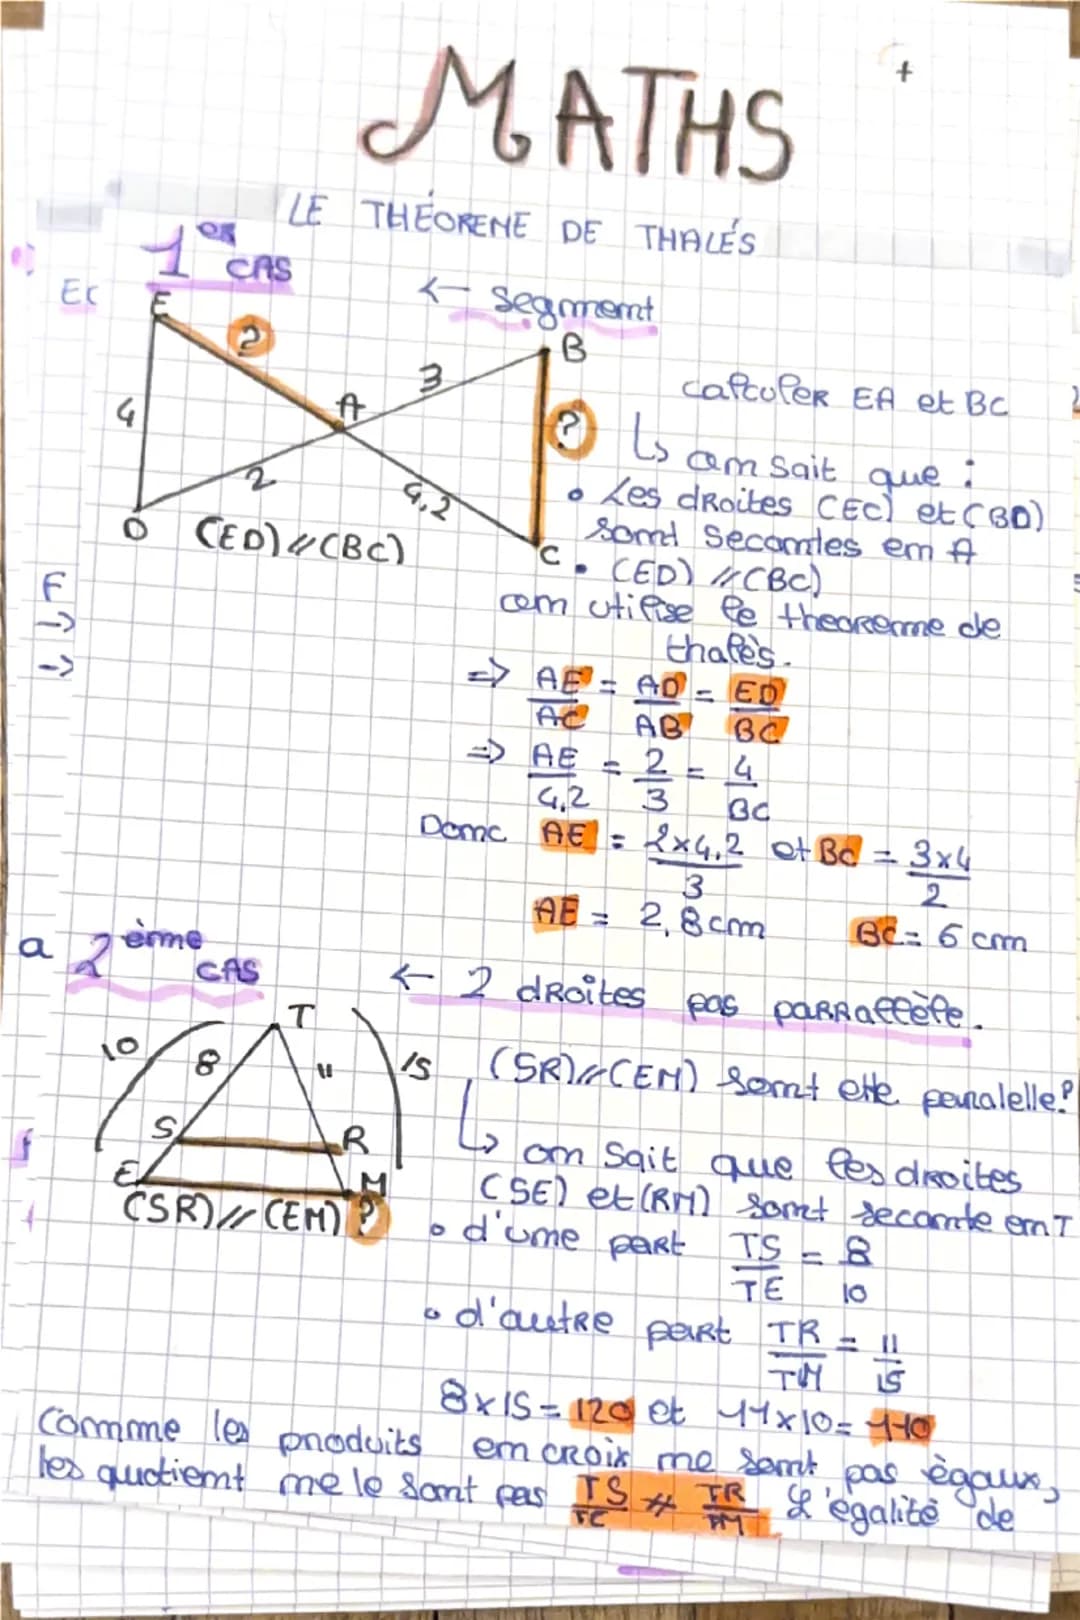 MATHS
+
LE THÉOREME DE THALÉS
1er CAS
← segment
EC
E
?
4
A
3
B
?
2
4,2
D
C
(ED) // (BC)
calculer EA et BC
↳ on sait que :
• Les droites (EC) et (BD)
sont secantes en A
• (ED) // (BC)
on utilise le theoreme de
thalès.
F
→
→
=> AE/AC = AD/AB = ED/BC
=> AE/4,2 = 2/3 = 4/BC
Donc AE = 2x4,2/3 et BC = 3x4/2
AE = 2,8 cm BC = 6 cm
a
2ème CAS
← 2 droites pas parrallèle.
T
10
8
11
15
S
R
E
M
(SR) // (EM) ?
(SR) // (EM) sont elle paralelle?
↳ on sait que les droites
(SE) et (RM) sont secante en T
• d'une part TS/TE = 8/10
• d'autre part TR/TM = 11/15
8x15 = 120 et 11x10 = 110
Comme les produits en croix ne sont pas ègaux,
les quotient ne le sont pas TS/TE ≠ TR/TM L'égalité de